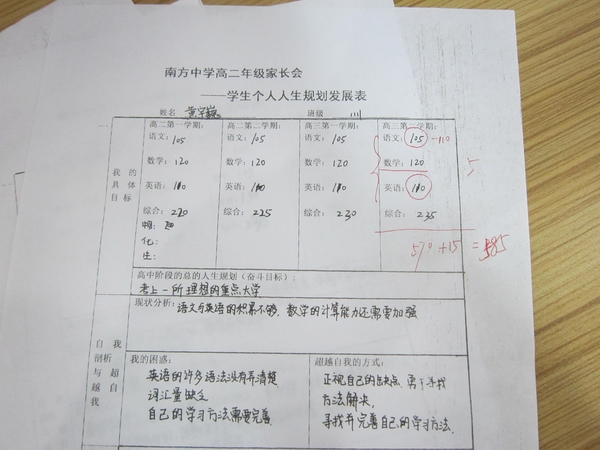 南方中学高二年级家长会
——学生个人人生规划发展表
姓名 班级
高二第一学期： 高二第二学期： 高三第一学期： 高三第二学期：
语文：105 语文：105 语文：105 语文：105 -110
数学：120 数学：120 数学：120 数学：120
我的具体目标
英语：110 英语：110 英语：110 英语：110
综合：220 综合：225 综合：230 综合：235
物：
化：
生：
570+15=585
高中阶段的总的人生规划（奋斗目标）：
考上一所理想的重点大学
现状分析：语文与英语的积累不够，数学的计算能力还需要加强
自我剖析与超越自我
我的困惑： 超越自我的方式：
英语的许多语法没有弄清楚 正视自己的缺点，勇于寻找
词汇量缺乏 方法解决，
自己的学习方法需要完善 寻找并完善自己的学习方法.